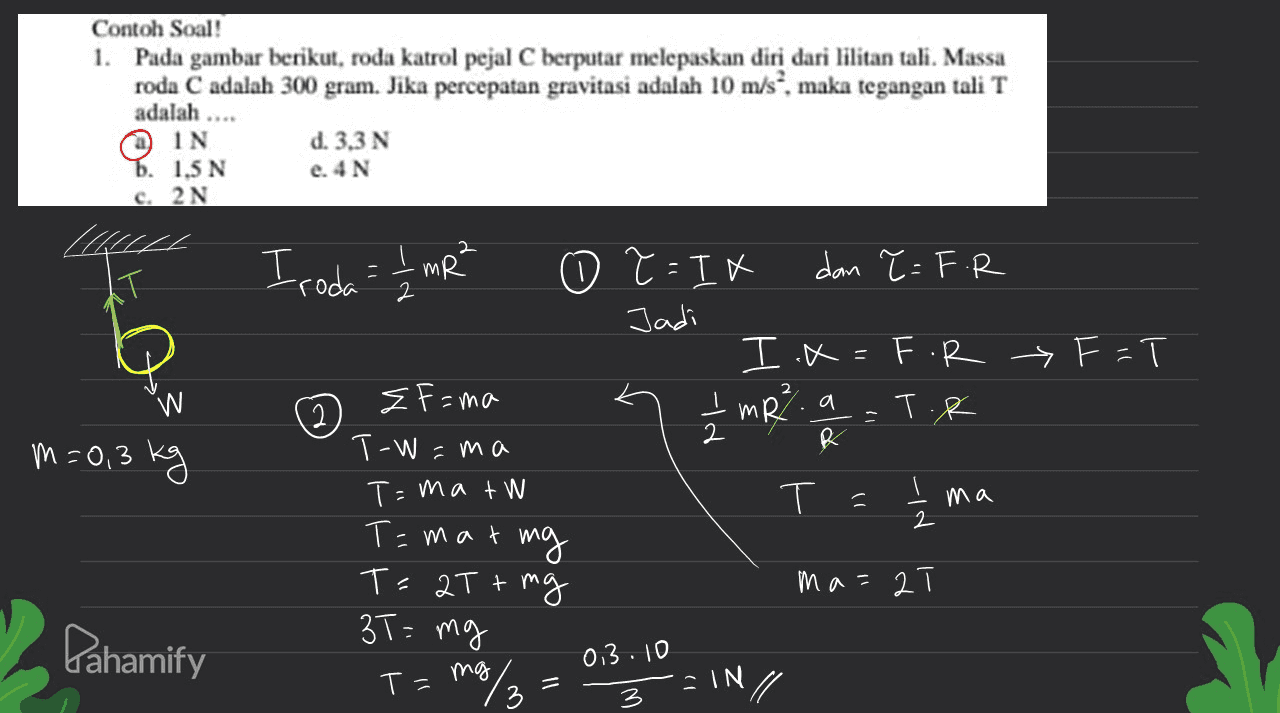 Contoh Soal!
1. Pada gambar berikut, roda katrol pejal C berputar melepaskan diri dari lilitan tali. Massa
roda C adalah 300 gram. Jika percepatan gravitasi adalah 10 m/s², maka tegangan tali T
adalah ....
a. 1 N d. 3,3 N
b. 1,5 N e. 4 N
c. 2 N
T
W
m=0,3 kg
I roda = 1/2 mR²
① τ = I α dan τ = F.R
Jadi
I.α = F.R → F = T
1/2 mR². a/R = T.R
T = 1/2 ma
ma = 2T
② ΣF=ma
T-W = ma
T = ma + W
T = ma + mg
T = 2T + mg
3T = mg
T = mg/3 = 0,3.10/3 = 1N //
Pahamify